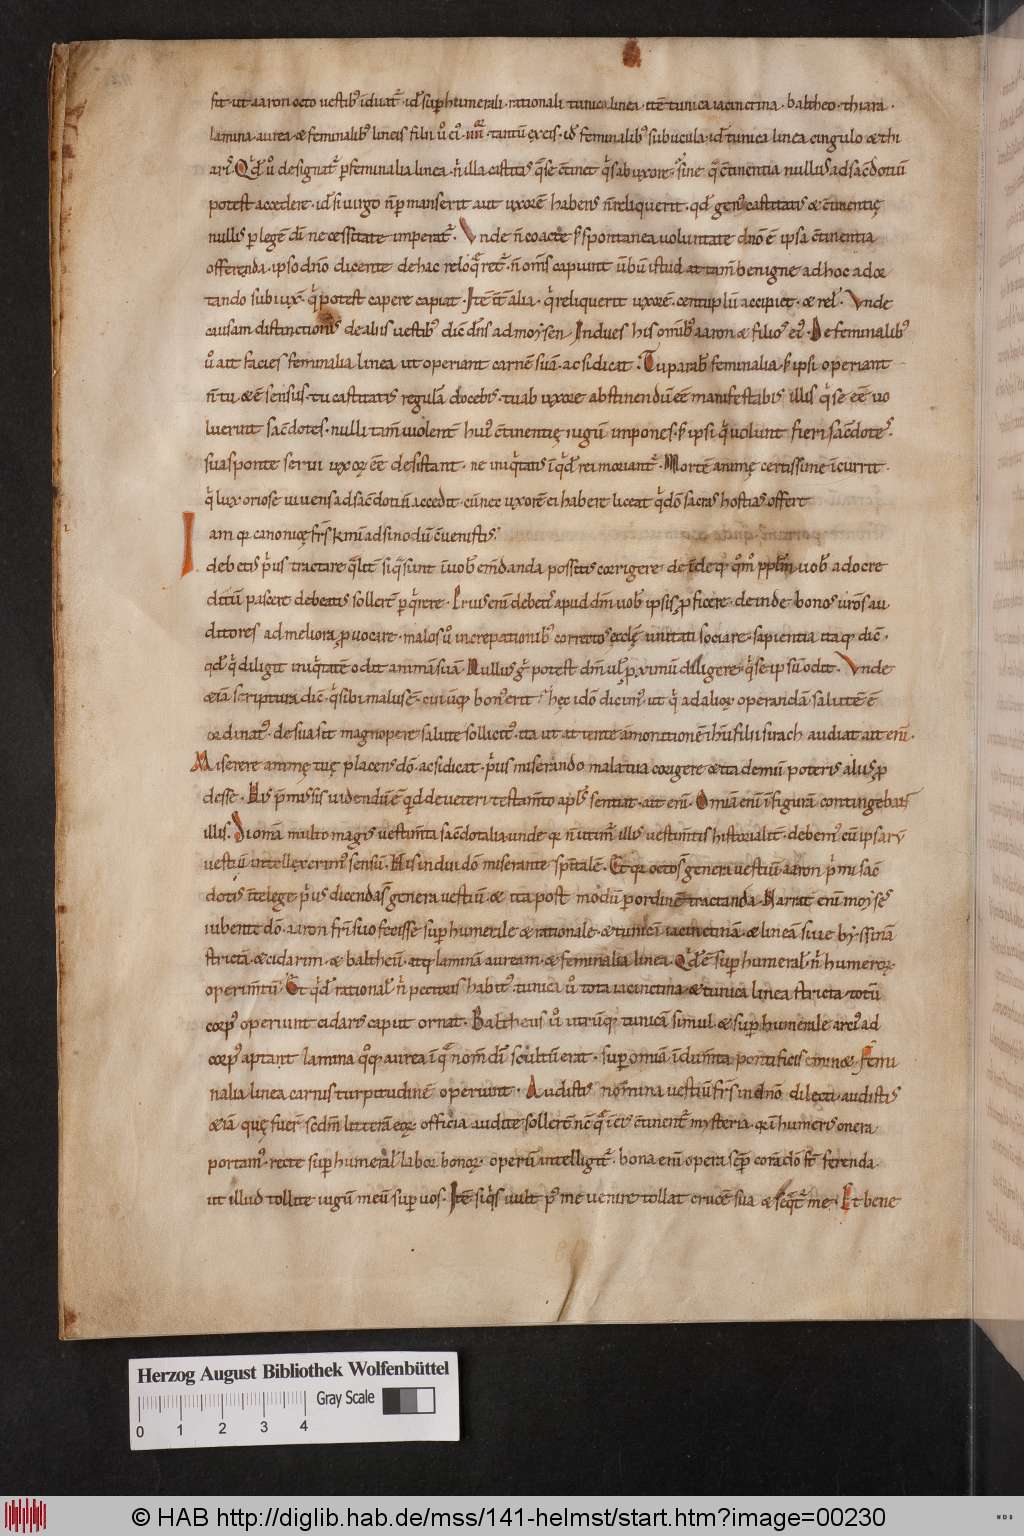 fit ut aaron octo uestib; induat᷑. id ē superhumerali. rationali tunica linea. itē tunica iacinctina. baltheo. thiara.
lamina aurea. & feminalib; lineis filii u̅ ei; IIII. tantū
feminalib; subucula. id tunica linea cingulo & thi
designat᷑ feminalia linea. illa castitas
continentia nullus ad sacdotiū
potest accedere. id si uirgo n̄ pmanserit aut uxorē habens n̄ reliquerit. qd gen; castitatis & c̄tinentię
nullis p legē dī necessitate imperat᷑. Vnde n̄ coacte s; spontanea uoluntate dnō ē ipsa c̄tinentia
offerenda. ipso dnō dicente de hac n̄ om̄s capiunt ūbū istud at tam̄ benigne ad hoc ador
tando subiux. potest capere capiat. Itē alia. reliquerit uxorē. centuplū accipiet. & rel. Vnde
causam distinctionis de aliis uestib; dic̄ dn̄s ad moysen Indues his om̄ib; aaron & filios ei;. De feminalib;
u̅ ait facies feminalia linea ut operiant carnē suā. ac si dicat. Tu parab feminalia s; ipsi operiant
n̄ tu & ē sensus. tu castitatis regulā docebis. tu ab uxore abstinendū eē manifestabis illis q̄ se eē uo
luerint sacdotes. nulli tam̄ uiolent̄ hui; c̄tinentię iugū impones. s; ipsi q̄ uolunt fieri sacdotes.
sua sponte serui uxoꝝ eē desistant. ne moueant᷑. Mortē animę certissime īcurrit.
q̄ luxoriose uiuens ad sacdotiū accedit. cū nec uxorē ei habere liceat q̄ dō sacras hostias offert
Iam canonicę frs̄ km̄i ad sinodū c̄uenistis.
debetis p̄us tractare siq̄ sunt ī uob em̄danda possitis corrigere deinde uob ad docre
ditū pascere debeatis sollert̄ pq̄rere. Prius enī debetis apud dm̄ uob ipsis pficere. deinde bonos uros au
ditores ad meliora puocare. malos u̅ increpationib; correctos ecclę unitati sociare. sapientia ita dic̄.
qd q̄ diligit iniq̄tatē odit animā suā. Nullus potest dm̄ ul pximū diligere. q̄ se ipsū odit. Vnde
& iā scriptura dic̄. q̄ sibi malus ē. cui bon; erit hęc idō dicim;. ut q̄ ad alioꝝ operandā salutē ē
ordinat;. de sua sit magnopere salute sollicit;. ita ut attente āmonitionē ihū filii sirach audiat ait enī.
Miserere animę tuę placens dō. ac si dicat. p̄us miserando mala tua corrigere & ita demū poteris aliis p
desse. His p̄missis uidendū ē qd de ueteri testam̄to apls sentiat. ait enī. Omīa enī ī figurā contingebant
illis. Si omīa multo magis uestim̄ta sacdotalia. unde illis uestim̄tis historialit. debem; eū ipsarū
uestiū intellexerim; sensū. His indui dō miserante spitalē. Et octo s genera uestiū aaron p̄mi sac
dotis ī telege p̄us dicenda s̄ genera uestiū. & ita post modū p ordinē tractanda. Narrat enī moyses
iubente dō. aaron frī suo fecisse superhumerale & rationale. & tunicā iacinctinā. & lineā siue byssinā
strictā. & cidarim. & baltheū. atq; laminā auream. & feminalia linea. superhumeral. humeroꝝ.
operim̄tū. Et rational. pectoris habit;. tunica u̅ tota iacinctina & tunica linea stricta totū
corp; operiunt cidaris caput ornat. Baltheus u̅ utrūq; tunicā simul & superhumerale arci; ad
corp; aptant lamina aurea ī q̄ nom̄ dī scultū erat. super omīa īdum̄ta pontificis emin&. Femi
nalia linea carnis turpitudinē operiunt. Audistis nomina uestiū frs̄ in dnō dilecti. audistis
& iā quę fuer̄ scdm litterā eoꝝ officia audite sollert̄ ī eis c̄tinent᷑ mysteria. ī humeris onera
portam;. recte superhumeral labor bonoꝝ. operū intelligit᷑. bona enī opera sēp corā dō s̄t ferenda
ut illud tollite iugū meū super uos. Itē siq̄s uult p; me uenire tollat crucē suā & seq̄t᷑ me. Et bene
Herzog August Bibliothek Wolfenbüttel
Gray Scale
0 1 2 3 4
© HAB http://diglib.hab.de/mss/141-helmst/start.htm?image=00230